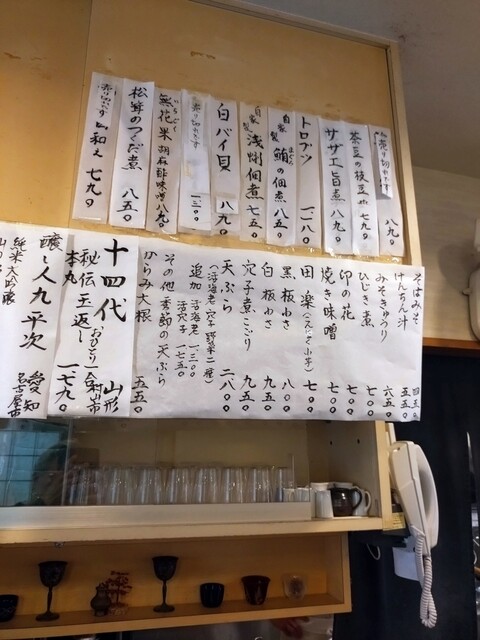 売り切れです 八九〇
茶豆の枝豆 七九〇
サザエ旨煮 八九〇
トロブツ 一、一八〇
自家製 鮪の佃煮 八五〇
自家製 浅蜊佃煮 七五〇
白バイ貝 八九〇
売り切れです 一、三〇〇
無花果 胡麻酢味噌 八九〇
松茸のつくだ煮 八五〇
売り切れです 山和え 七九〇
そばみそ 四五〇
けんちん汁 五五〇
みそきゅうり 六五〇
ひじき煮 七〇〇
卯の花 七〇〇
焼き味噌 七〇〇
田楽
黒板わさ 八〇〇
白板わさ 九五〇
穴子煮こごり 九五〇
天ぷら 二、一八〇
追加 活海老 一、三〇〇
活穴子 一、七五〇
その他 季節の天ぷら
からみ大根 五五〇
十四代 山形
秘伝玉返し
本丸 一、七九〇
醸し人九平次 愛知
純米大吟醸 名古屋市